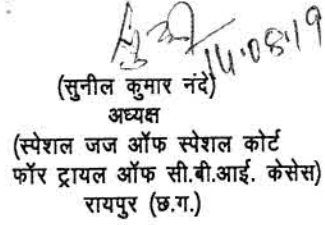 14.08.19
(सुनील कुमार नंदे)
अध्यक्ष
(स्पेशल जज ऑफ स्पेशल कोर्ट
फॉर ट्रायल ऑफ सी.बी.आई. केसेस)
रायपुर (छ.ग.)